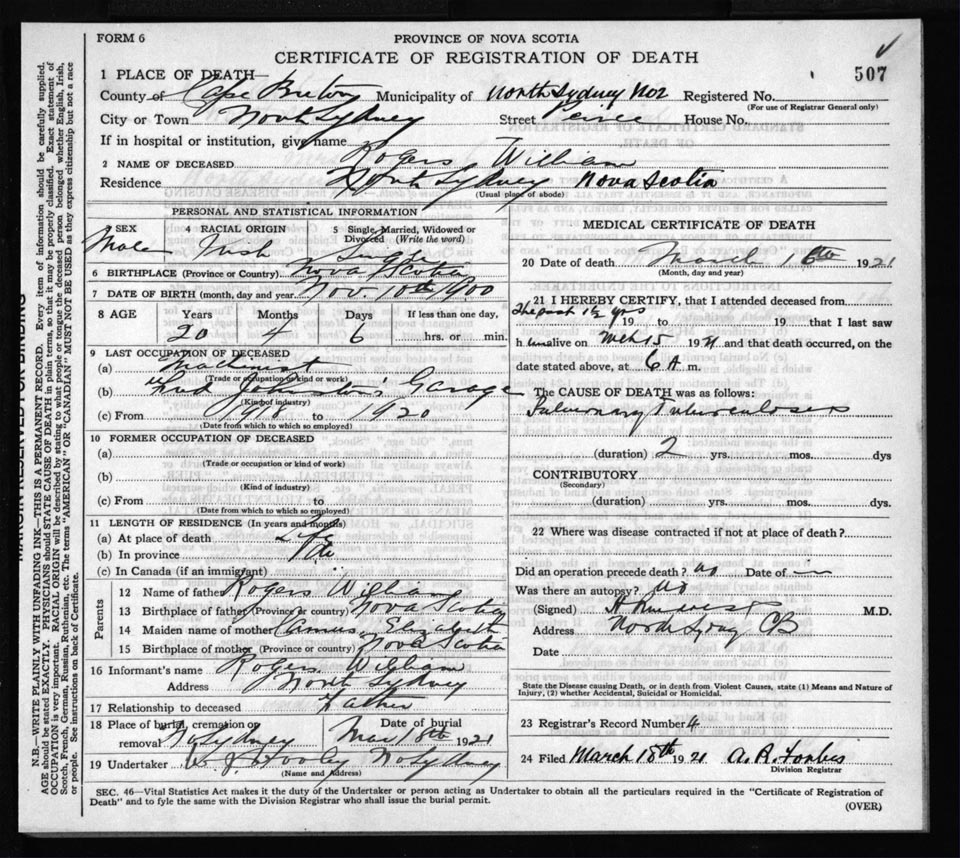 FORM 6
PROVINCE OF NOVA SCOTIA
CERTIFICATE OF REGISTRATION OF DEATH
507
1 PLACE OF DEATH—
County of Cape Breton Municipality of North Sydney No 2 Registered No.
(For use of Registrar General only)
City or Town North Sydney Street Peirce House No.
If in hospital or institution, give name
2 NAME OF DECEASED Rogers William
Residence North Sydney Nova Scotia
(Usual place of abode)
PERSONAL AND STATISTICAL INFORMATION
3 SEX Male 4 RACIAL ORIGIN Irish 5 Single, Married, Widowed or Divorced (Write the word) Single
6 BIRTHPLACE (Province or Country) Nova Scotia
7 DATE OF BIRTH (month, day and year) Nov. 10th 1900
8 AGE Years Months Days If less than one day,
20 4 6 hrs. or min.
9 LAST OCCUPATION OF DECEASED
(a) Machinist
(Trade or occupation or kind of work)
(b) Johnston's Garage
(Kind of industry)
(c) From 1918 to 1920
(Date from which to which so employed)
10 FORMER OCCUPATION OF DECEASED
(a)
(Trade or occupation or kind of work)
(b)
(Kind of industry)
(c) From to
(Date from which to which so employed)
11 LENGTH OF RESIDENCE (In years and months)
(a) At place of death Life
(b) In province
(c) In Canada (if an immigrant)
Parents
12 Name of father Rogers William
13 Birthplace of father (Province or country) Nova Scotia
14 Maiden name of mother Elizabeth
15 Birthplace of mother (Province or Country) Nova Scotia
16 Informant's name Rogers William
Address North Sydney
17 Relationship to deceased Father
18 Place of burial, cremation or removal No Sydney Date of burial Mar 18th 1921
19 Undertaker W. J. Dooley No Sydney
(Name and Address)
MEDICAL CERTIFICATE OF DEATH
20 Date of death March 16th 1921
(Month, day and year)
21 I HEREBY CERTIFY, that I attended deceased from
The past 1½ yrs 19 to 19 that I last saw
h im alive on Mch 15 1921 and that death occurred, on the
date stated above, at 6 A. m.
The CAUSE OF DEATH was as follows:
Pulmonary Tuberculosis
(duration) 2 yrs. mos. dys
CONTRIBUTORY
(Secondary)
(duration) yrs. mos. dys.
22 Where was disease contracted if not at place of death?
Did an operation precede death? no Date of —
Was there an autopsy? No
(Signed) M.D.
Address North Sydney CB
Date
State the Disease causing Death, or in death from Violent Causes, state (1) Means and Nature of
Injury, (2) whether Accidental, Suicidal or Homicidal.
23 Registrar's Record Number 4
24 Filed March 18th 1921 A. R. Forbes
Division Registrar
SEC. 46—Vital Statistics Act makes it the duty of the Undertaker or person acting as Undertaker to obtain all the particulars required in the "Certificate of Registration of
Death" and to fyle the same with the Division Registrar who shall issue the burial permit.
(OVER)
MARGIN RESERVED FOR BINDING
N.B.—WRITE PLAINLY WITH UNFADING INK—THIS IS A PERMANENT RECORD. Every item of information should be carefully supplied.
AGE should be stated EXACTLY. PHYSICIANS should STATE CAUSE OF DEATH in plain terms, so that it may be properly classified. Exact statement of
OCCUPATION is very important. RACIAL ORIGIN will be described by stating to what people or tongue the deceased person belonged whether English, Irish,
Scotch, French, German, Russian, Ruthenian, etc. The terms "AMERICAN" OR "CANADIAN" MUST NOT BE USED as they express citizenship but not a race
or people. See instructions on back of Certificate.